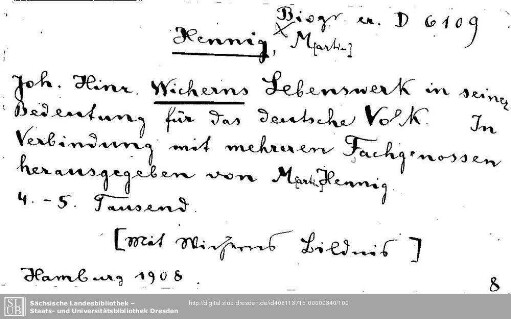 Biogr. er. D 6109
Hennig, M[artin]
Joh. Hinr. Wicherns Lebenswerk in seiner
Bedeutung für das deutsche Volk. In
Verbindung mit mehreren Fachgenossen
herausgegeben von M[artin] Hennig.
4.-5. Tausend.
[Mit Wicherns Bildnis]
Hamburg 1908.
8
Sächsische Landesbibliothek –
Staats- und Universitätsbibliothek Dresden